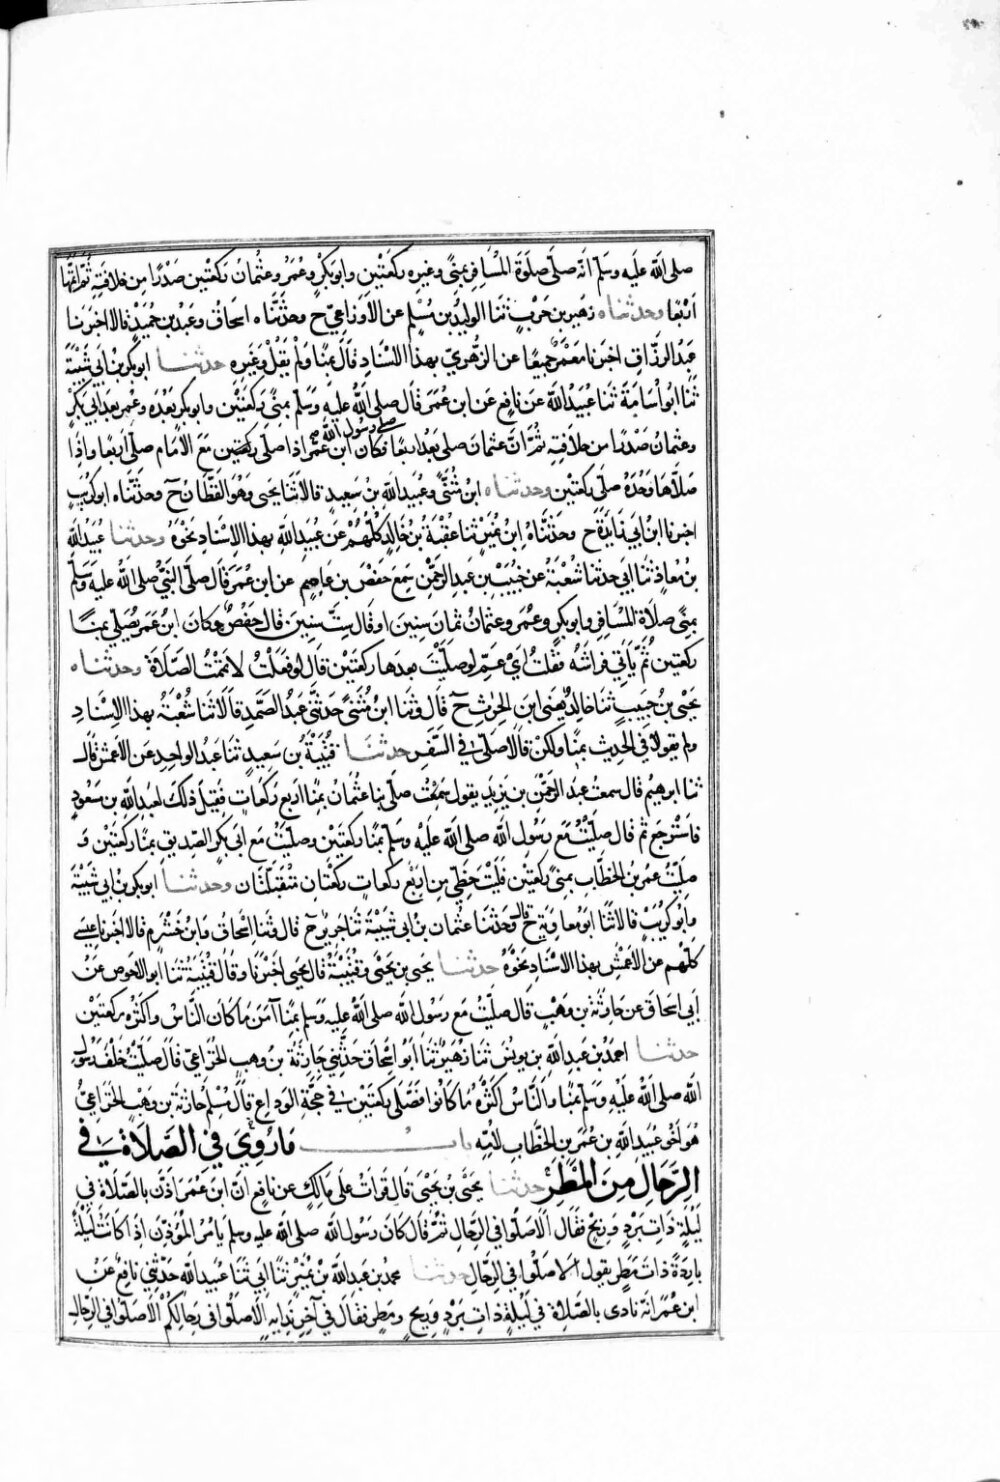 صلى الله عليه وسلم انه صلى صلوة المسافر بمنى وغيره ركعتين وابو بكر وعمر وعثمان ركعتين صدرا من خلافته ثم اتمها
اربعا وحدثناه زهير بن حرب ثنا الوليد بن مسلم عن الاوزاعي ح وحدثناه اسحاق وعبد بن حميد قالا اخبرنا
عبد الرزاق اخبرنا معمر جميعا عن الزهري بهذا الاسناد قال بمنا ولم يقل وغيره حدثنا ابو بكر بن ابي شيبة
ثنا ابو اسامة ثنا عبيد الله عن نافع عن ابن عمر قال صلى الله عليه وسلم بمنى ركعتين وابو بكر بعده وعمر بعد ابي بكر
صلى رسول الله صح
وعثمان صدرا من خلافته ثم ان عثمان صلى بعد اربعا فكان ابن عمر اذا صلى ركعتين مع الامام صلى اربعا واذا
صلاها وحده صلى ركعتين وحدثناه ابن مثنى وعبيد الله بن سعيد قالا ثنا يحيى وهو القطان ح وحدثناه ابو كريب
اخبرنا ابن ابي زايدة ح وحدثناه ابن نمير ثنا عقبة بن خالد كلهم عن عبيد الله بهذا الاسناد نحوه وحدثنا عبيد الله
بن معاذ ثنا ابي حدثنا شعبة عن خبيب بن عبد الرحمن سمع حفص بن عاصم عن ابن عمر قال صلى النبي صلى الله عليه وسلم
بمنى صلاة المسافر وابو بكر وعمر وعثمان ثمان سنين او قال ست سنين قال حفص وكان ابن عمر يصلي بمنا
ركعتين ثم ياتي فراشه فقلت اي عم لو صليت بعدها ركعتين قال لو فعلت لاتممت الصلاة وحدثناه
يحيى بن حبيب ثنا خالد يعني ابن الحرث ح قال وثنا ابن مثنى حدثني عبد الصمد قالا ثنا شعبة بهذا الاسناد
ولم يقولا في الحديث بمنا ولكن قالا صلى في السفر حدثنا قتيبة بن سعيد ثنا عبد الواحد عن الاعمش قال
ثنا ابرهيم قال سمعت عبد الرحمن بن يزيد يقول صلى بنا عثمان بمنا اربع ركعات فقيل ذلك لعبد الله بن مسعود
فاسترجع ثم قال صليت مع رسول الله صلى الله عليه وسلم بمنا ركعتين وصليت مع ابي بكر الصديق بمنا ركعتين و
صليت عمر بن الخطاب بمنى ركعتين فليت حظي من اربع ركعات ركعتان متقبلتان وحدثنا ابو بكر بن ابي شيبة
وابو كريب قالا ثنا ابو معاوية ح قال وحدثنا عثمان بن ابي شيبة ثنا جرير ح قال وثنا اسحاق وابن خشرم قالا اخبرنا عيسى
كلهم عن الاعمش بهذا الاسناد نحوه حدثنا يحيى بن يحيى وقتيبة قال يحيى اخبرنا وقال قتيبة ثنا ابو الاحوص عن
ابي اسحاق عن حارثة بن وهب قال صليت مع رسول الله صلى الله عليه وسلم بمنا آمن ما كان الناس واكثره ركعتين
حدثنا احمد بن عبد الله بن يونس ثنا زهير ثنا ابو اسحاق حدثني حارثة بن وهب الخزاعي قال صليت خلف رسول
الله صلى الله عليه وسلم بمنا والناس اكثر ما كانوا فصلى ركعتين في حجة الوداع قال مسلم حارثة بن وهب الخزاعي
هو اخو عبيد الله بن عمر بن الخطاب لامه باب ما روي في الصلاة في
الرحال من المطر حدثنا يحيى بن يحيى قال قرات على مالك عن نافع ان ابن عمر اذن بالصلاة في
ليلة ذات برد وريح فقال الا صلوا في الرحال ثم قال كان رسول الله صلى الله عليه وسلم يامر المؤذن اذا كانت ليلة
باردة ذات مطر يقول الا صلوا في الرحال حدثنا محمد بن عبد الله بن نمير ثنا ابي ثنا عبيد الله حدثني نافع عن
ابن عمر انه نادى بالصلاة في ليلة ذات برد وريح ومطر فقال في آخر ندايه الا صلوا في رحالكم الا صلوا في الرحال